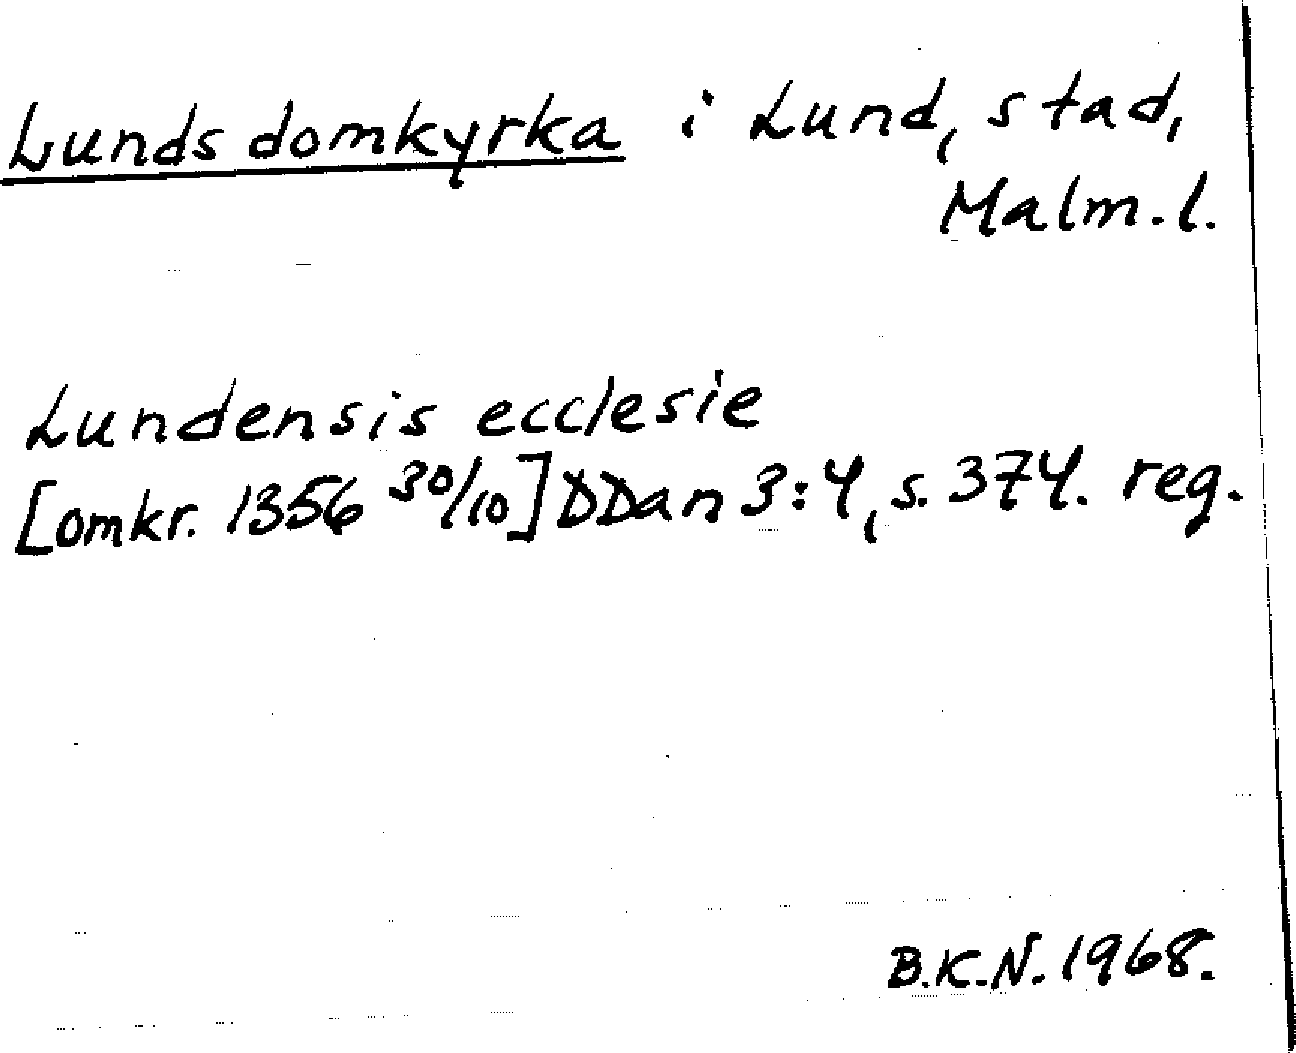 Lunds domkyrka i Lund, stad,
Malm. l.
Lundensis ecclesie
[omkr. 1356 30/10] DDan 3:4, s. 374. reg.
B.K.N. 1968.